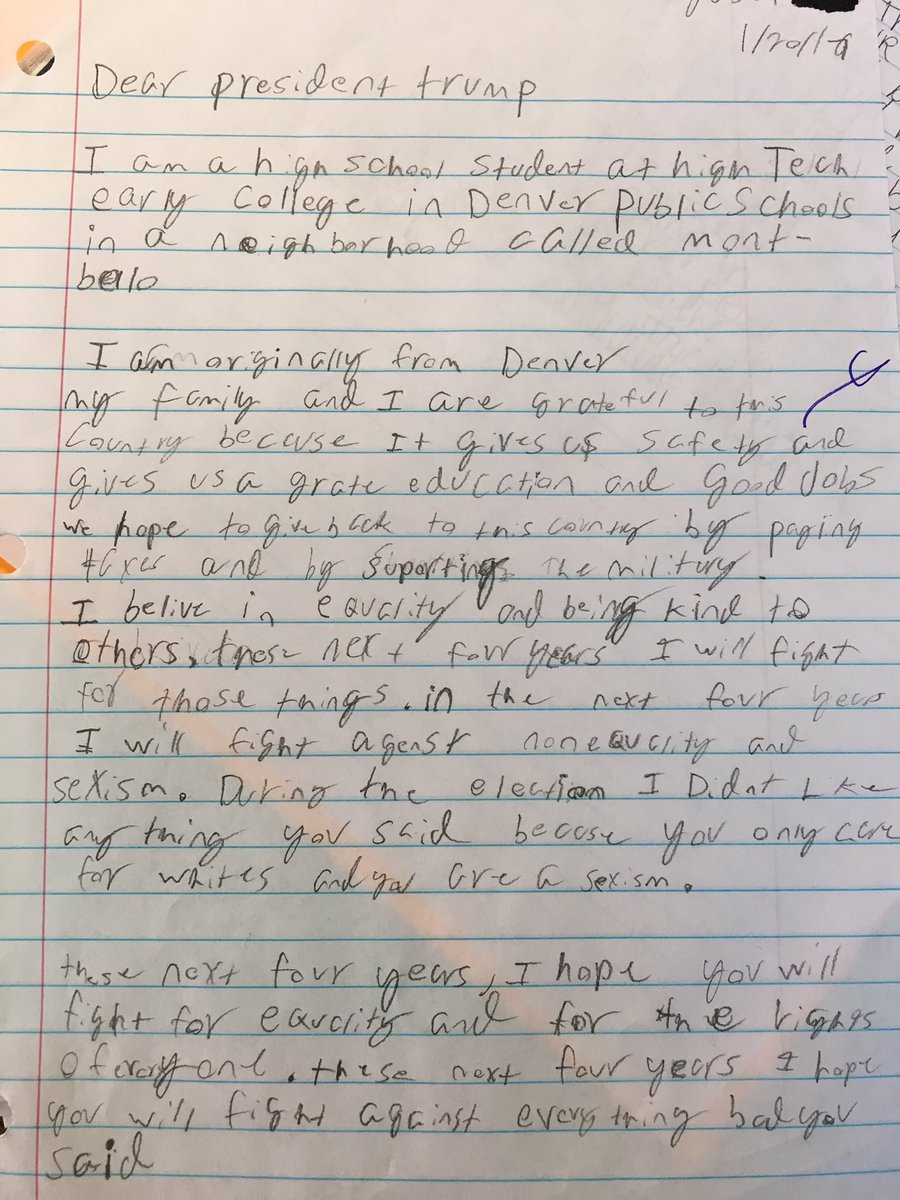 1/20/17
Dear president trump
I am a high school student at high Tech
early college in Denver public schools
in a neighborhood called mont-
belo
I am originally from Denver
my family and I are grateful to this
country becuse It gives us safety and
gives us a grate education and Good Jobs
we hope to give back to this country by paying
taxes and by suportings the military.
I belive in equality and being kind to
others. these next four years I will fight
for those things. in the next four years
I will fight agenst nonequality and
sexism. During the election I Didnt Like
any thing you said becose you only care
for whites and you are a sexism.
these next four years, I hope you will
fight for equality and for the rights
of everyone. these next four years I hope
you will fight against everything bad you
said